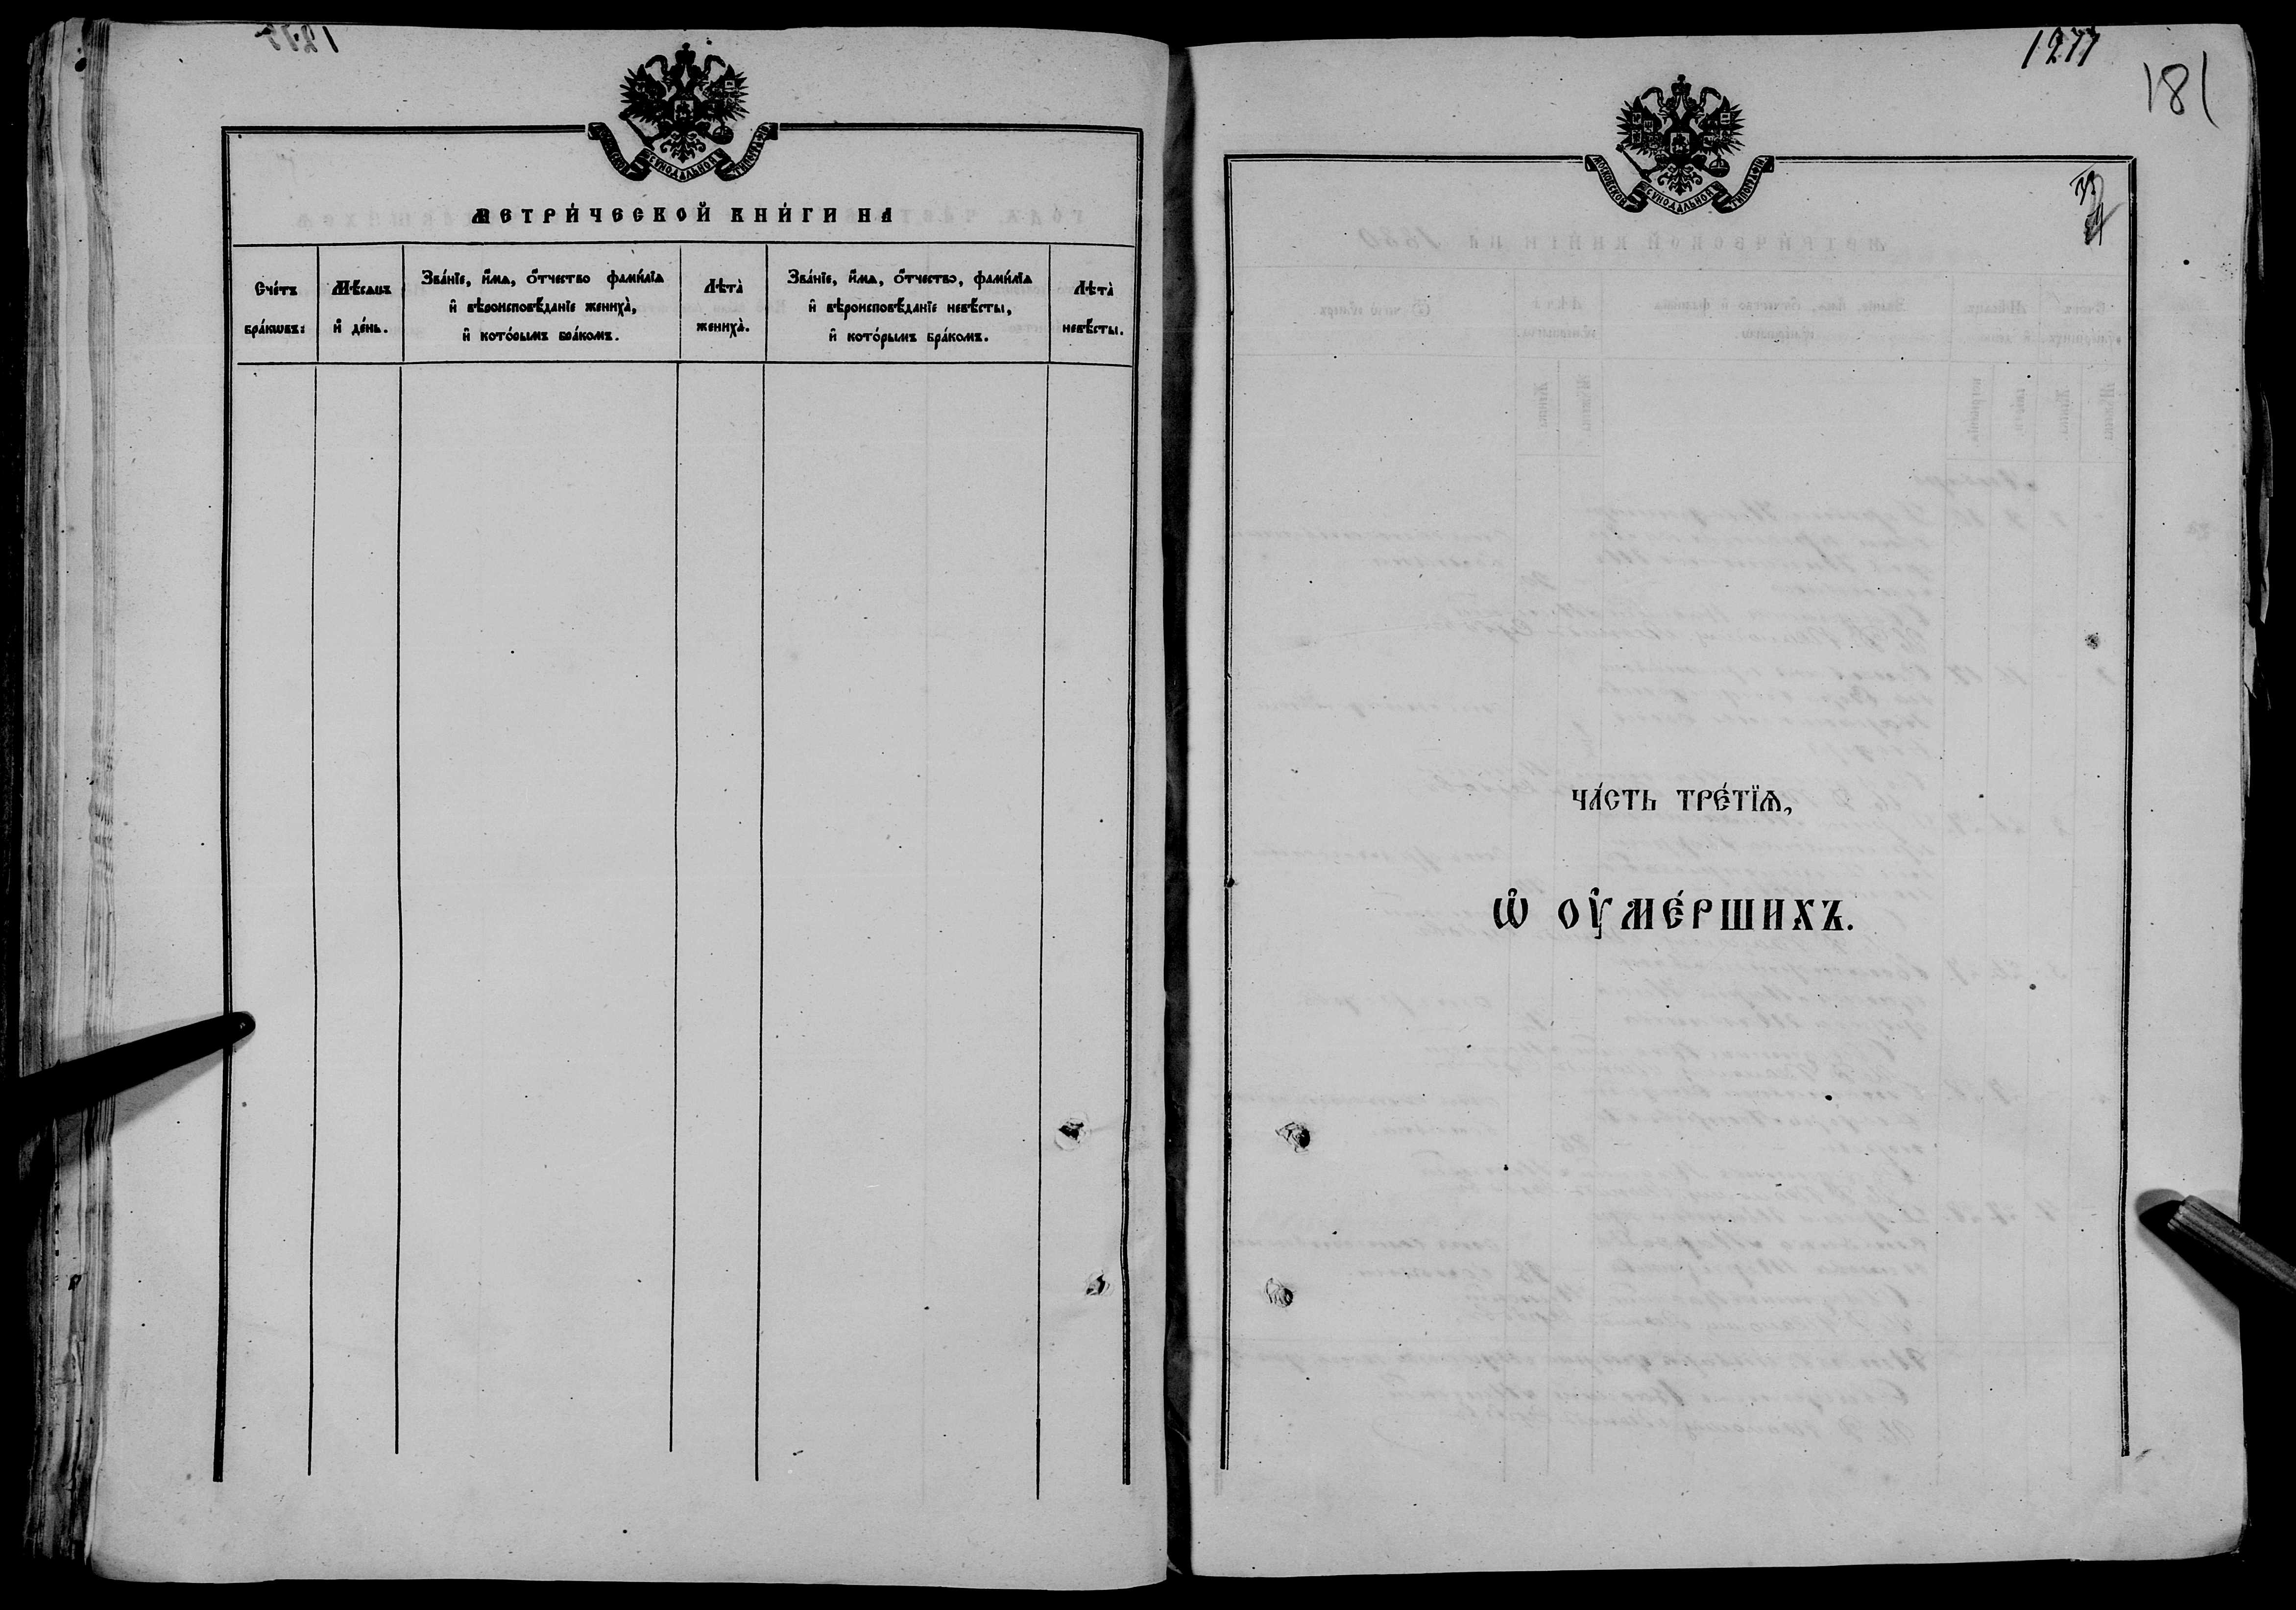 МОСКОВСКОЙ СѴНОДАЛЬНОЙ ТИПОГРАФІИ
МЕТРИ́ЧЕСКОЙ КНИ́ГИ НА
Сче́тъ
бра́кѡвъ:
Мѣ́сѧцъ
и҆ де́нь.
Зва́нїе, и҆́мѧ, ѻ҆́тчество фами́лїѧ
и҆ вѣроисповѣ́данїе жениха̀,
и҆ кото́рымъ бра́комъ.
Лѣта̀
жениха̀.
Зва́нїе, и҆́мѧ, ѻ҆́тчество, фами́лїѧ
и҆ вѣроисповѣ́данїе невѣ́сты,
и҆ кото́рымъ бра́комъ.
Лѣта̀
невѣ́сты.
1277
181
МОСКОВСКОЙ СѴНОДАЛЬНОЙ ТИПОГРАФІИ
ЧА́СТЬ ТРЕ́ТЇѦ,
Ѡ҆ ОУ҆МЕ́РШИХЪ.